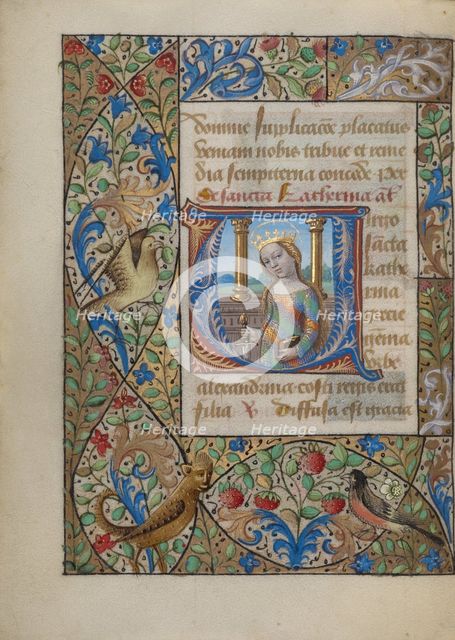 domine suplicacōe placatus
veniam nobis tribue et reme
dia sempiterna concede Per
De sancta Katherina añ
irgo
sācta
kathe
rina
grecie
gēma
vrbe
alexandrina costi regis erat
filia ℣ Diffusa est gracia
Heritage
Heritage
Heritage
Heritage
Heritage
Heritage
Heritage
Heritage
Heritage